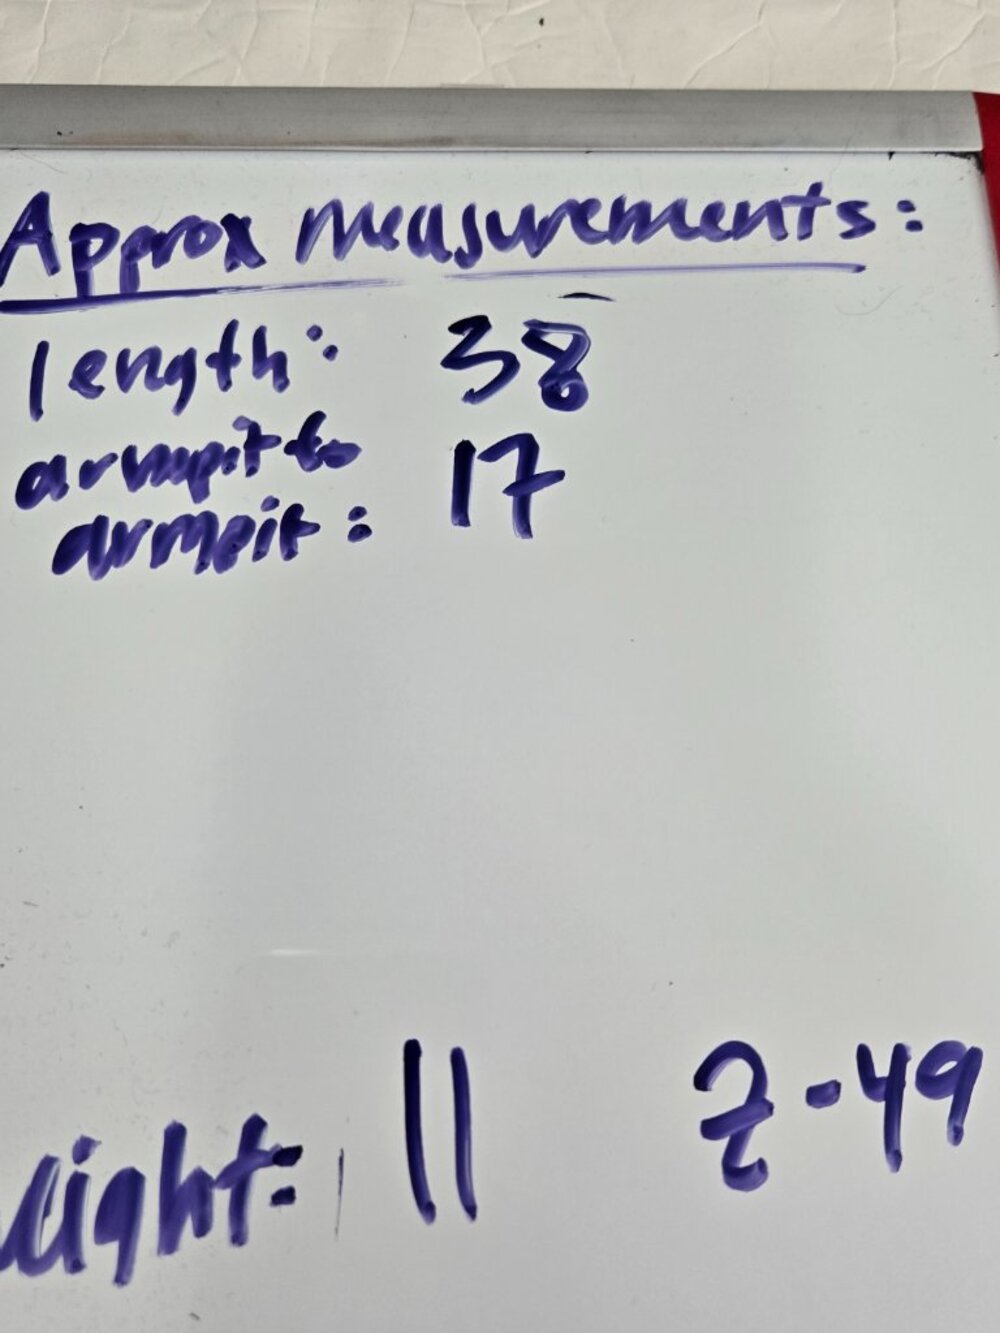 Approx measurements:
length: 38
armpit to
armpit: 17
eight: 11 Z-49